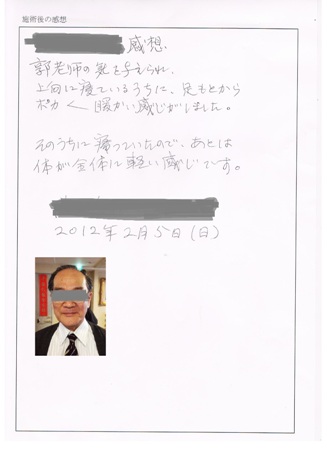 施術後の感想
感想.
郭老師の気を与えられ、
上向に寝ているうちに、足もとから
ポカ〱暖かい感じがしました。
そのうちに寝っていたので、あとは
体が全体に軽い感じです。
2012年2月5日(日)